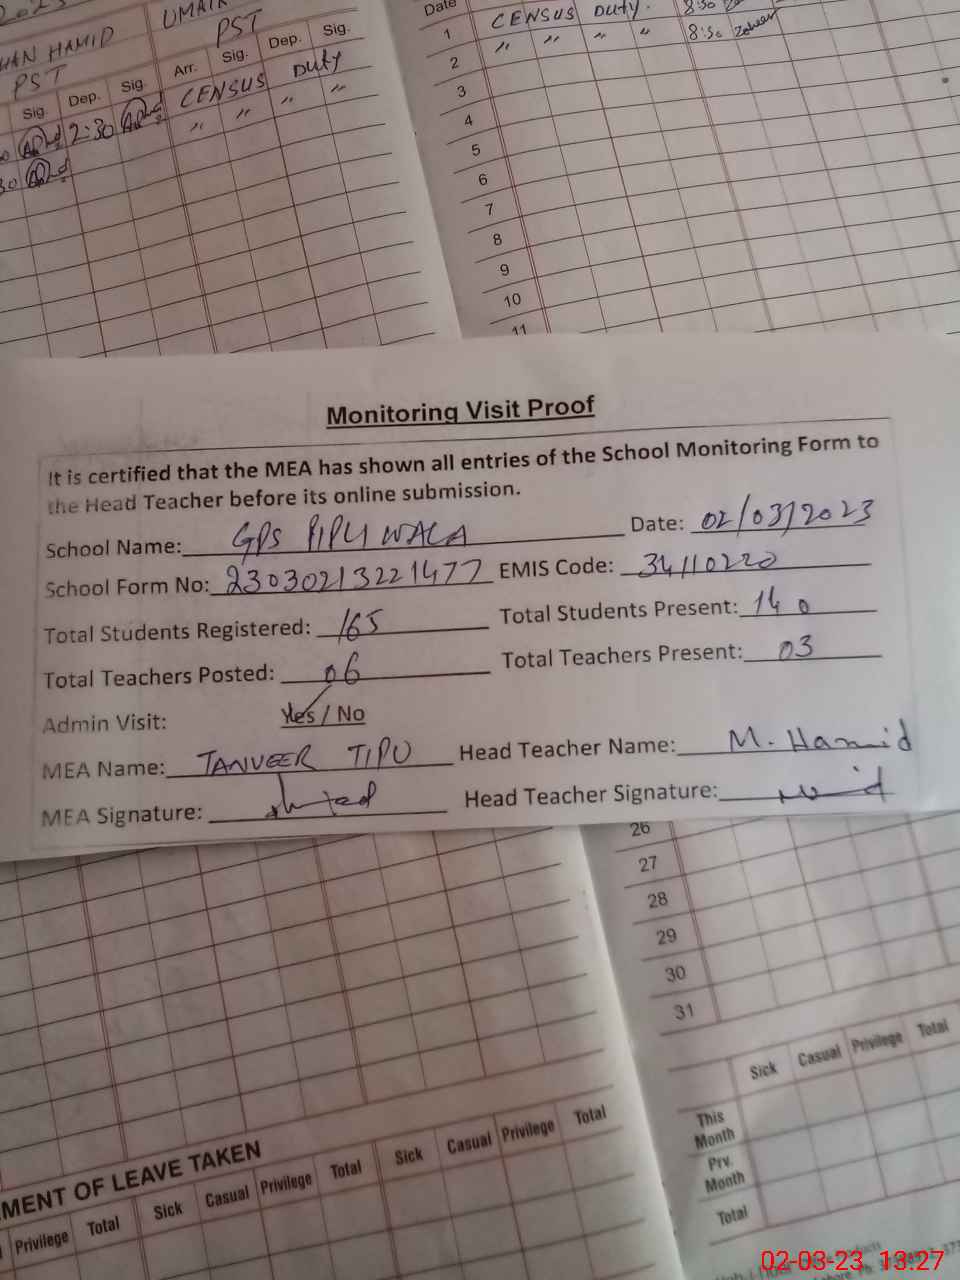 HAN HAMID UMAIR
PST PST
Sig. Dep. Sig. Arr. Sig. Dep. Sig.
2:30 CENSUS Duty
30 " " " "
Date
1 CENSUS Duty. 8:30
2 " " " " 8:30
3
4
5
6
7
8
9
10
11
Monitoring Visit Proof
It is certified that the MEA has shown all entries of the School Monitoring Form to
the Head Teacher before its online submission.
School Name: GPS PIPLI WALA Date: 02/03/2023
School Form No: 23030213221477 EMIS Code: 34110220
Total Students Registered: 165 Total Students Present: 140
Total Teachers Posted: 06 Total Teachers Present: 03
Admin Visit: Yes / No
MEA Name: TANVEER TIPU Head Teacher Name: M. Hamid
MEA Signature: Head Teacher Signature:
26
27
28
29
30
31
Sick Casual Privilege Total
This
Month
Prv.
Month
Total
MENT OF LEAVE TAKEN
Privilege Total Sick Casual Privilege Total Sick Casual Privilege Total
02-03-23 13:27